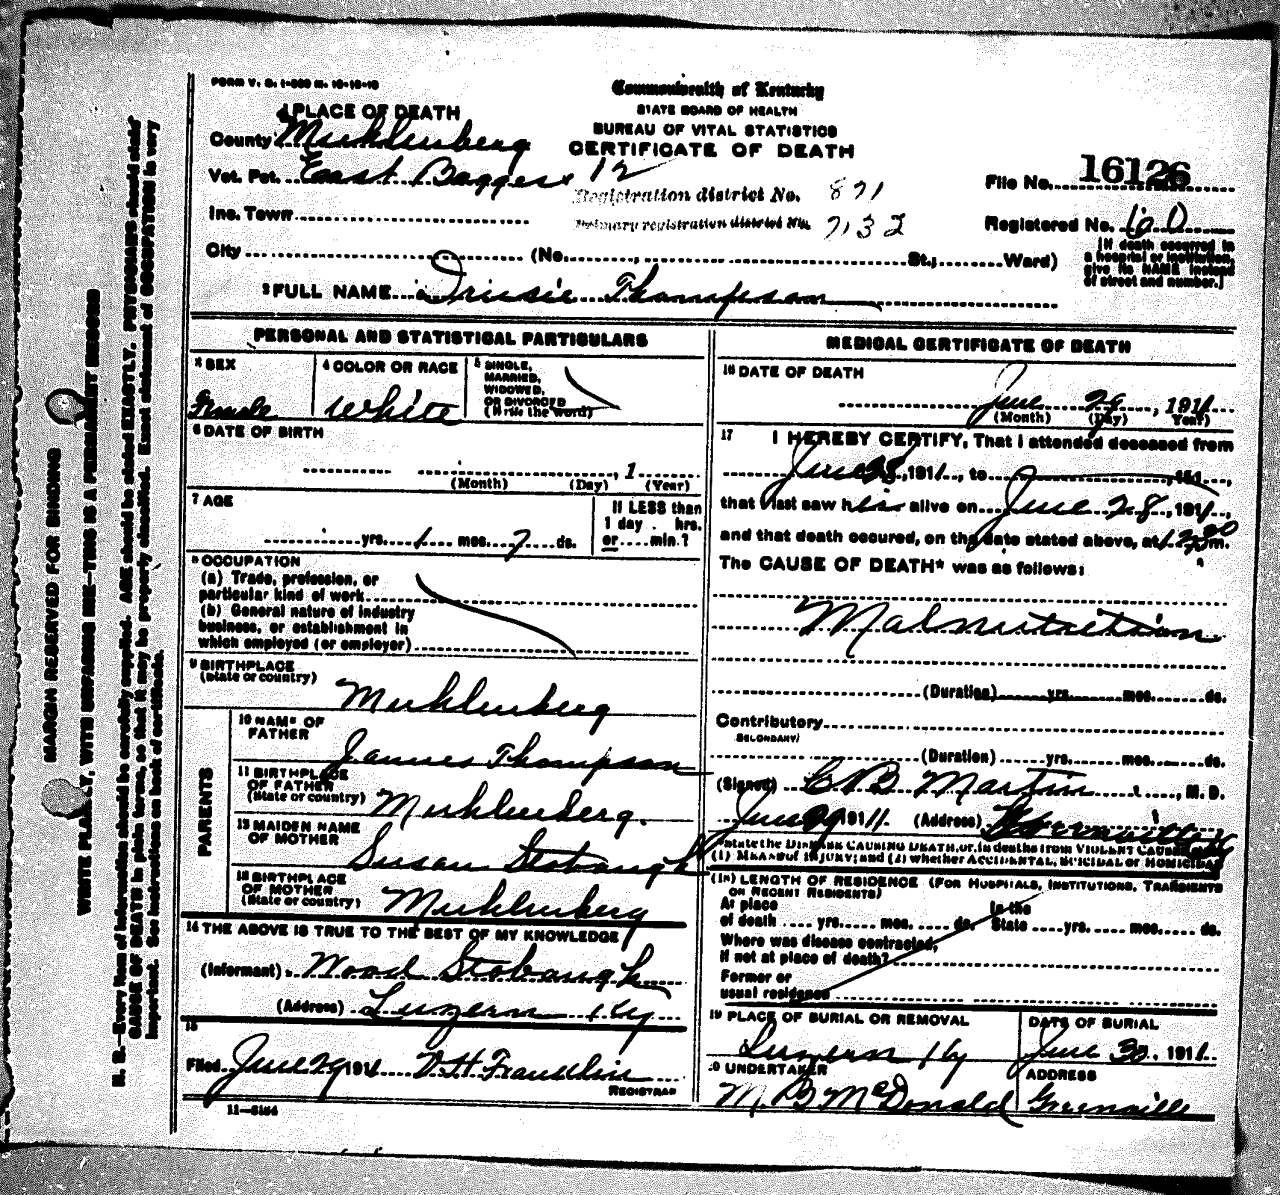 FORM V. S. 1-500 M. 10-18-10
Commonwealth of Kentucky
STATE BOARD OF HEALTH
BUREAU OF VITAL STATISTICS
CERTIFICATE OF DEATH
1 PLACE OF DEATH
County Muhlenberg
Vot. Pct. East Bagges 12
Registration district No. 871
File No. 16126
Inc. Town
Primary registration district No. 7132
Registered No. 60
City (No. , St.; Ward)
[If death occurred in
a hospital or institution,
give its NAME instead
of street and number.]
2 FULL NAME Thompson
PERSONAL AND STATISTICAL PARTICULARS
3 SEX
Female
4 COLOR OR RACE
White
5 SINGLE,
MARRIED,
WIDOWED,
OR DIVORCED
(Write the word)
6 DATE OF BIRTH
, 1
(Month) (Day) (Year)
7 AGE
yrs. 1 mos. 7 ds.
If LESS than
1 day . hrs.
or min.?
8 OCCUPATION
(a) Trade, profession, or
particular kind of work
(b) General nature of industry
business, or establishment in
which employed (or employer)
9 BIRTHPLACE
(State or country)
Muhlenberg
PARENTS
10 NAME OF
FATHER
James Thompson
11 BIRTHPLACE
OF FATHER
(State or country)
Muhlenberg.
12 MAIDEN NAME
OF MOTHER
Susan Stobaugh
13 BIRTHPLACE
OF MOTHER
(State or country)
Muhlenberg
14 THE ABOVE IS TRUE TO THE BEST OF MY KNOWLEDGE
(Informant) Wood Stobaugh
(Address) Luzern Ky
15
Filed June 29 1911 V H Franklin
REGISTRAR
11-5184
MEDICAL CERTIFICATE OF DEATH
16 DATE OF DEATH
June 29, 1911
(Month) (Day) Year)
17 I HEREBY CERTIFY, That I attended deceased from
June 28, 1911, to , 191 ,
that I last saw h is alive on June 28, 1911,
and that death occured, on the date stated above, at m.
The CAUSE OF DEATH* was as follows:
Malnutrition
(Duration) yrs. mos. ds.
Contributory
SECONDARY)
(Duration) yrs. mos. ds.
(Signed) C B Martin, M. D.
June 29 1911 (Address)
*State the DISEASE CAUSING DEATH, or, in deaths from VIOLENT CAUSES, state
(1) MEANS of INJURY; and (2) whether ACCIDENTAL, SUICIDAL or HOMICIDAL
(18) LENGTH OF RESIDENCE (FOR HOSPITALS, INSTITUTIONS, TRANSIENTS
OR RECENT RESIDENTS)
At place In the
of death yrs. mos. ds. State yrs. mos. ds.
Where was disease contracted,
if not at place of death?
Former or
usual residence
19 PLACE OF BURIAL OR REMOVAL
Luzern Ky
DATE OF BURIAL
June 30, 1911
20 UNDERTAKER
M. B McDonald
ADDRESS
Greenville
MARGIN RESERVED FOR BINDING
WRITE PLAINLY, WITH UNFADING INK—THIS IS A PERMANENT RECORD
N. B.—Every item of information should be carefully supplied. AGE should be stated EXACTLY. PHYSICIANS should state
CAUSE OF DEATH in plain terms, so that it may be properly classified. Exact statement of OCCUPATION is very
important. See instructions on back of certificate.